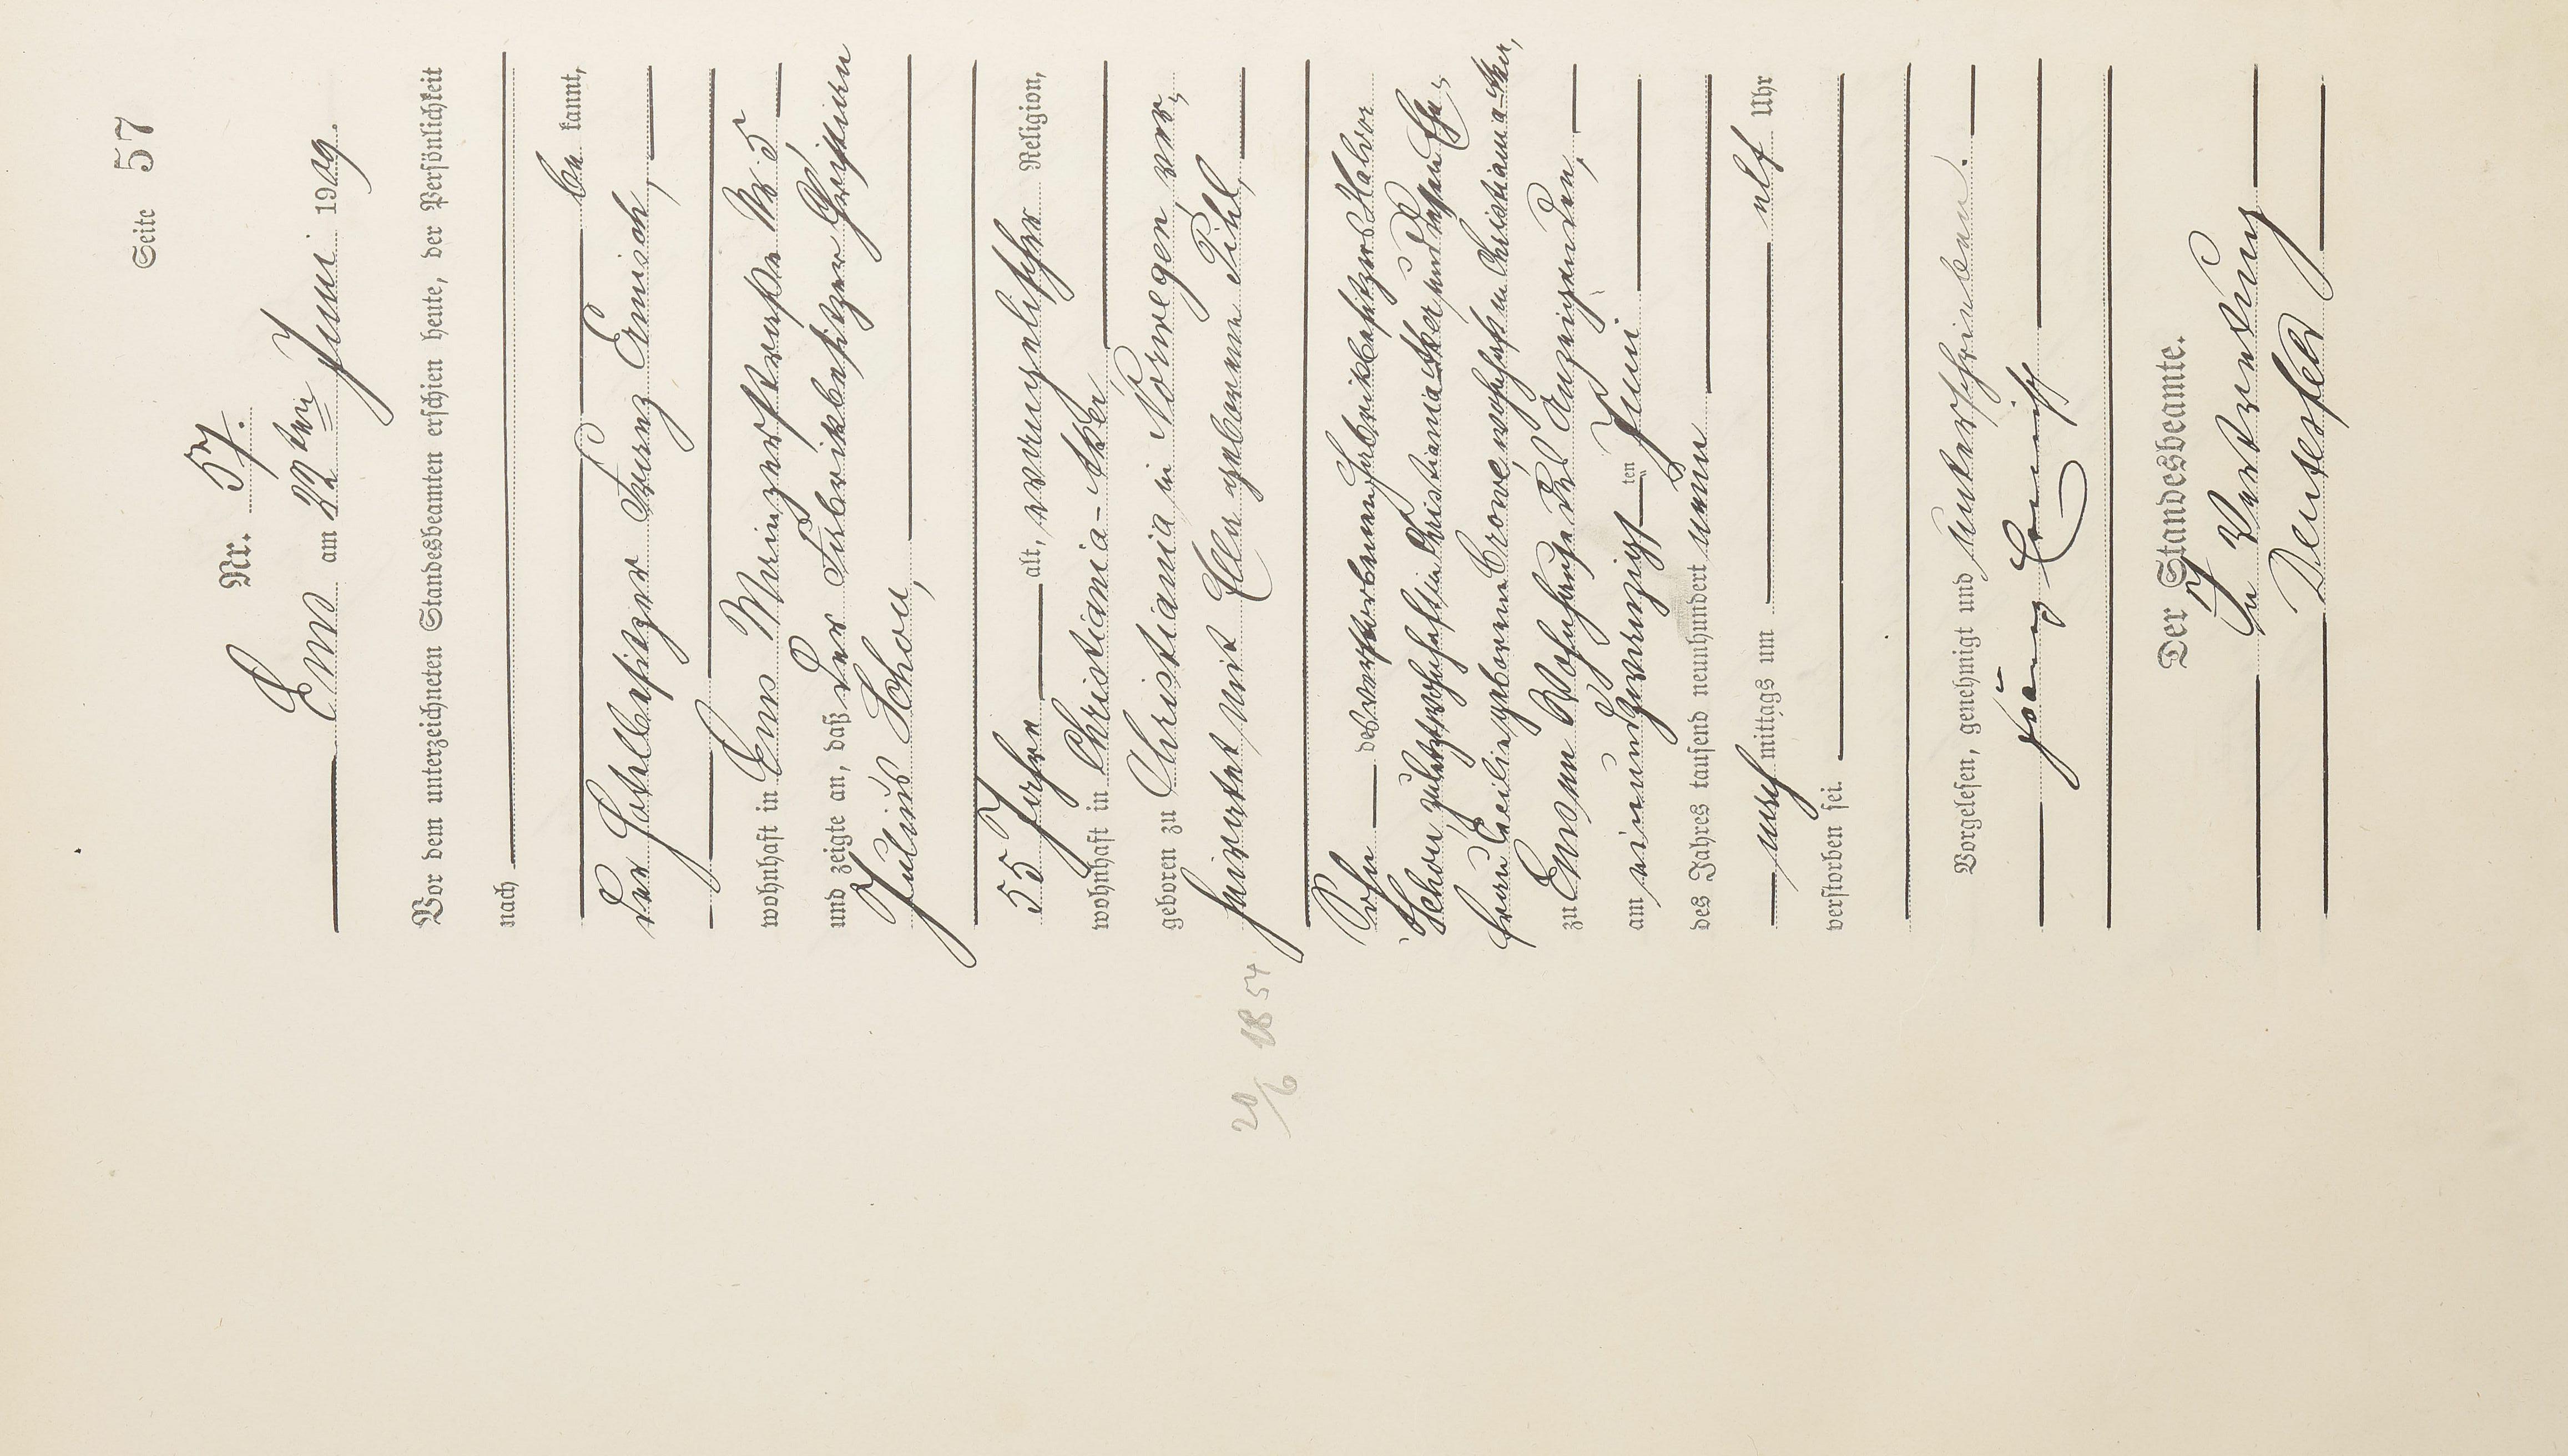 Seite 57
Nr. 57.
Ems am 22ten Juni 1909.
Vor dem unterzeichneten Standesbeamten erschien heute, der Persönlichkeit
nach
be kannt,
der Hotelbesitzer Franz Ermisch,
wohnhaft in Ems Mainzerstraße No 5,
und zeigte an, daß der Fabrikbesitzer Christian
Julius Schou,
55 Jahre alt, evangelischer Religion,
wohnhaft in Christiania-Aker
geboren zu Christiania in Norwegen, ver-
heiratet mit Elle geborenen Pihl,
Sohn des verstorbenen Fabrikbesitzers Halvor
Schou, zuletzt wohnhaft in Christiania Aker und dessen Ehe-
frau Cecilie geborenen Crowe, wohnhaft in Christiania Aker,
zu Ems im Wohnhause des Anzeigenden,
am einundzwanzigsten Juni
des Jahres tausend neunhundert neun
nachmittags um elf Uhr
verstorben sei.
20/6 1854
Vorgelesen, genehmigt und unterschrieben.
Franz Ermisch
Der Standesbeamte.
In Vertretung
Deusesfeld